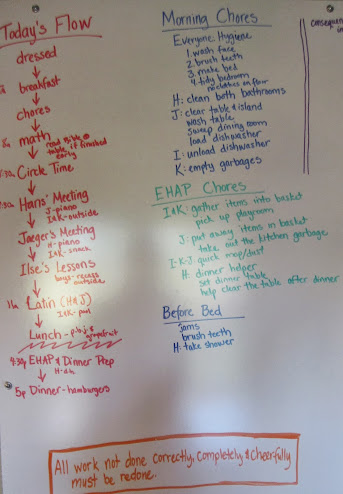 Today's Flow
dressed
breakfast
chores
math
read Bible @
table if finished
early
Circle Time
Hans' Meeting
J-piano
I&K-outside
Jaeger's Meeting
H-piano
I&K-snack
Ilse's Lessons
boys-recess
outside
Latin (H&J)
I&K-
Lunch - p.b.j &
grapefruit
4:30p EHAP & Dinner Prep
H-dh
5p Dinner-hamburgers
Morning Chores
Everyone: Hygiene
1. wash face
2. brush teeth
3. make bed
4. tidy bedroom
no clothes on floor
H: clean both bathrooms
J: clear table & island
wash table
sweep dining room
load dishwasher
I: unload dishwasher
K: empty garbages
EHAP Chores
I&K: gather items into basket
pick up playroom
J: put away items in basket
take out the kitchen garbage
I-K-J: quick mop/dust
H: dinner helper
set dinner table
help clear the table after dinner
Before Bed
jams
brush teeth
H-take shower
consequen
All work not done correctly, completely, & cheerfully
must be redone.